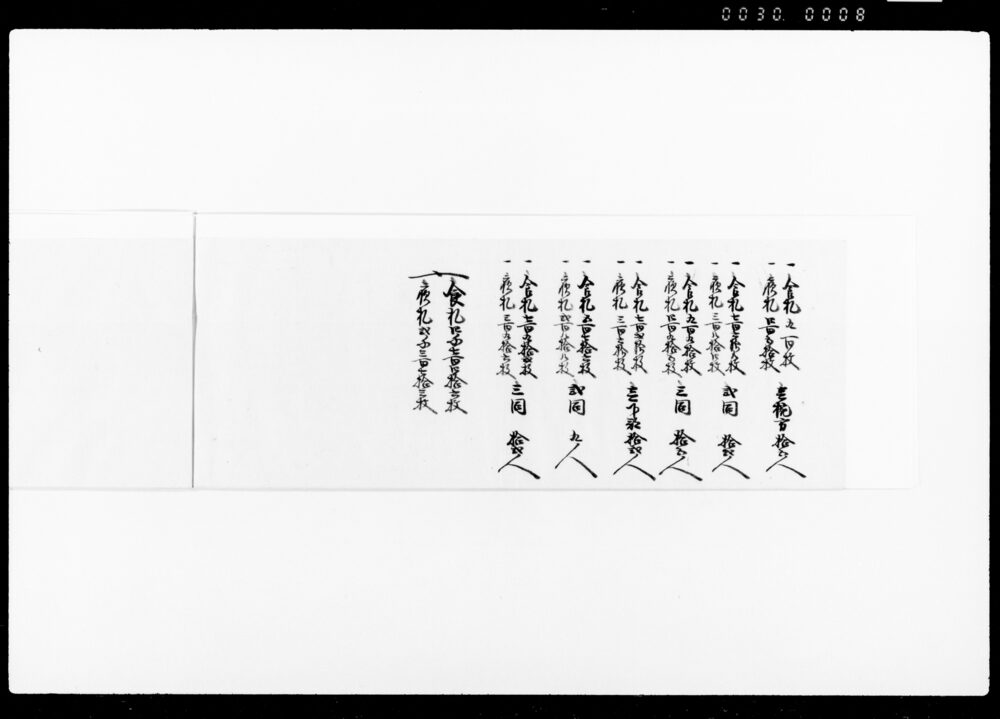 0030. 0008
一 食札九百枚
一 夜札四百五拾枚 壱 方拾五人
一 食札七百六拾八枚
一 夜札三百八拾四枚 弐同 拾弐人
一 食札九百九拾枚
一 夜札四百九拾五枚 三同 拾五人
一 食札七百弐拾枚
一 夜札三百六拾枚 壱下 拾弐人
一 食札五百七拾六枚
一 夜札弐百八拾八枚 弐同 九人
一 食札七百九拾弐枚
一 夜札三百九拾六枚 三同 拾弐人
食札四千七百四拾六枚
夜札弐千三百七拾三枚